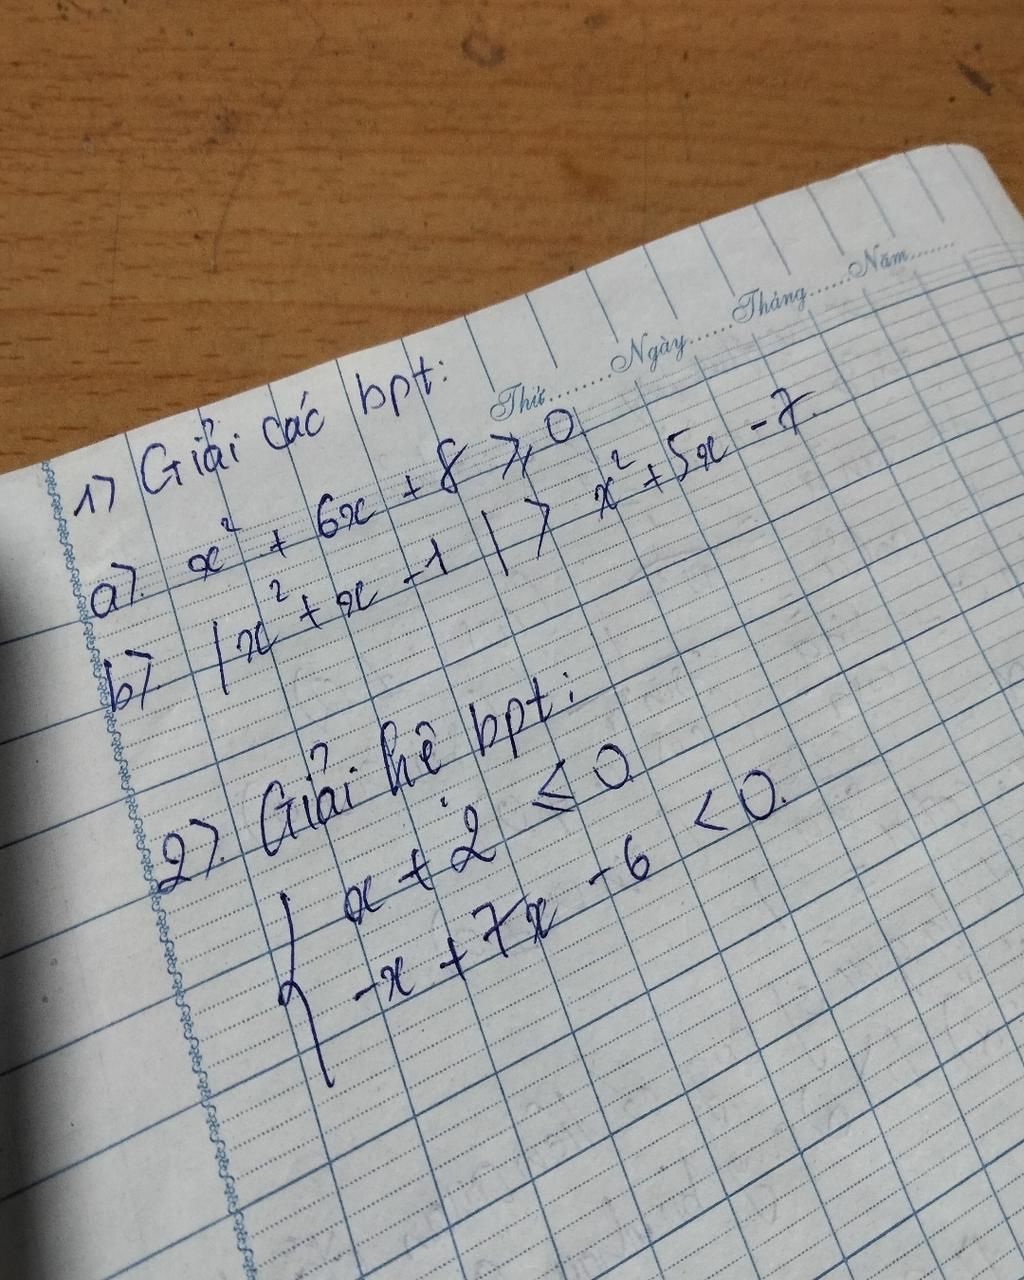 Thứ........Ngày......Tháng......Năm......
1) Giải các bpt:
a). x² + 6x + 8 ⩾ 0
b). |x² + x - 1| > x² + 5x - 7.
2). Giải hệ bpt:
{ x + 2 ≤ 0
-x + 7x - 6 < 0.